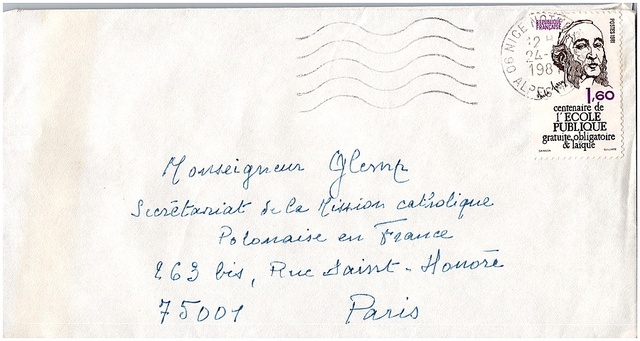 RÉPUBLIQUE
FRANÇAISE
POSTES 1981
06 NICE
12 H
24-
198
ALPES
1,60
centenaire de
l'ECOLE
PUBLIQUE
gratuite, obligatoire
& laïque
Monseigneur Glemp
Secrétariat de la Mission catholique
Polonaise en France
263 bis, Rue Saint-Honoré
75001 Paris